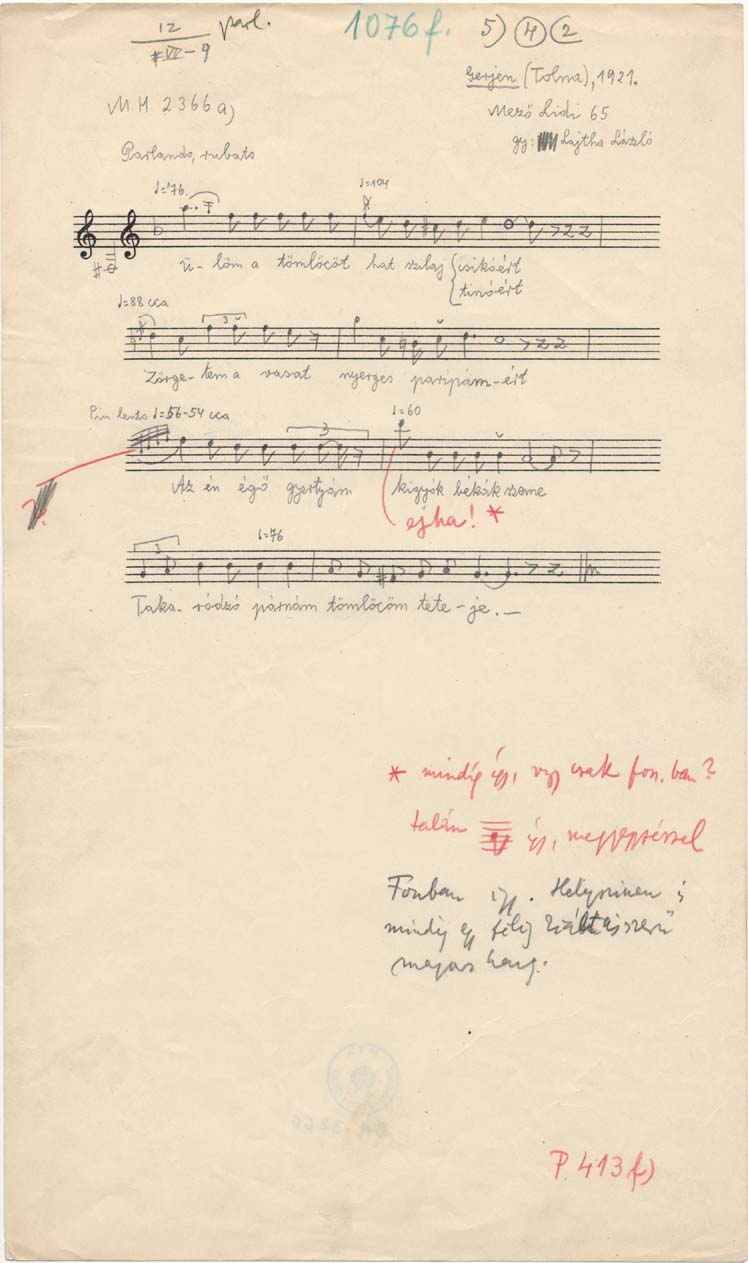 12 parl. 1076 f. 5) 4 2
VII - 9
Gerjen (Tolna), 1921.
M.H. 2366 a)
Mező Lidi 65
gy: Lajtha László
Parlando, rubato
♩=76. ♩=104
Ü-löm a tömlöcöt hat szilaj csikóért
tinóért
♩=88 cca
3
Zörge-tem a vasat nyerges paripám-ért
Piu lento ♩=56-54 cca ♩=60
3
Az én égő gyertyám kigyók békák szeme
?
ejha! *
3 ♩=76
Taka-ródzó párnám tömlöcöm tete-je.—
* mindíg így, vagy csak fon.ban?
talán így, megjegyzéssel
Fonban így. Helyszinen is
mindíg egy félig kiáltásszerű
magas hang.
P. 413 f)